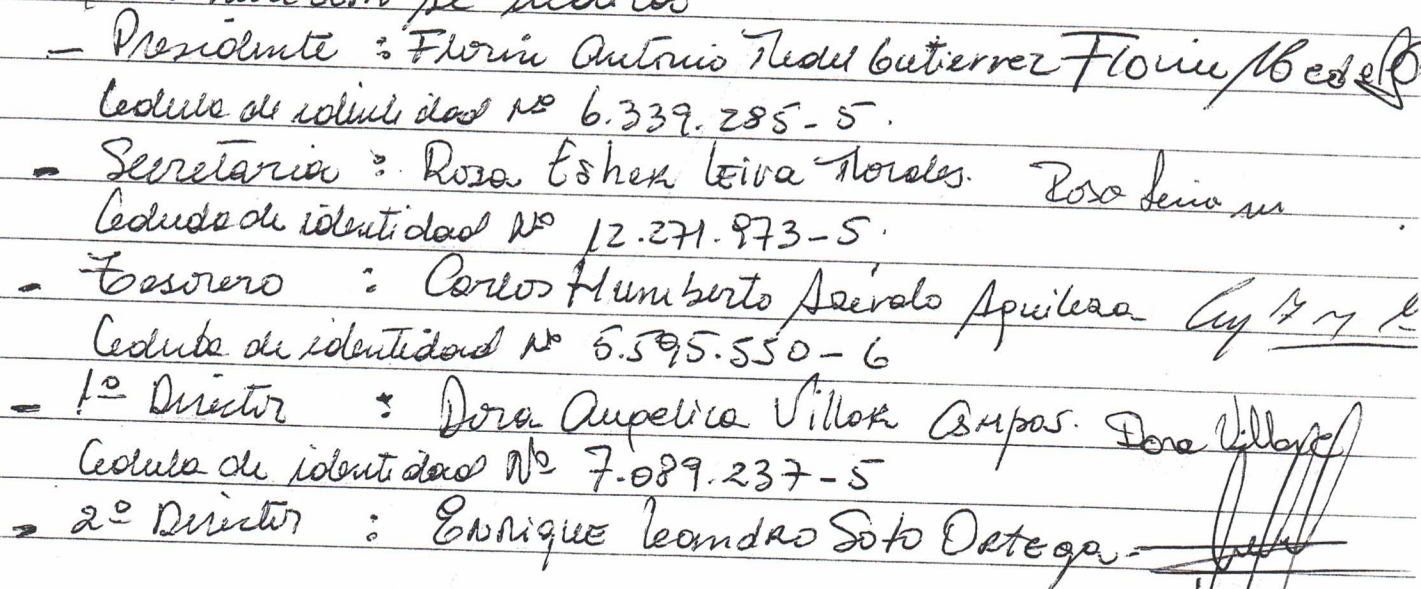 - Presidente : Florin Antonio Medel Gutierrez Florin Medel G
Cedula de identidad Nº 6.339.285-5.
- Secretaria : Rosa Esher Leiva Morales. Rosa Leiva m
Cedula de identidad Nº 12.271.973-5.
- Tesorero : Carlos Humberto Azévalo Aguilera
Cedula de identidad Nº 5.595.550-6
- 1º Director : Dora Angelica Villar Campos. Dora Villar
Cedula de identidad Nº 7.089.237-5
- 2º Director : Enrique Leandro Soto Ortega-